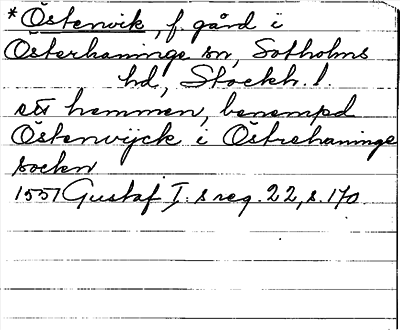 *Östervik, f. gård i
Österhaninge sn, Sotholms
hd, Stockh. l.
ett hemman, benempd
Östervijck i Östrehaninge
socken
1551 Gustaf I:s reg. 22, s. 170.